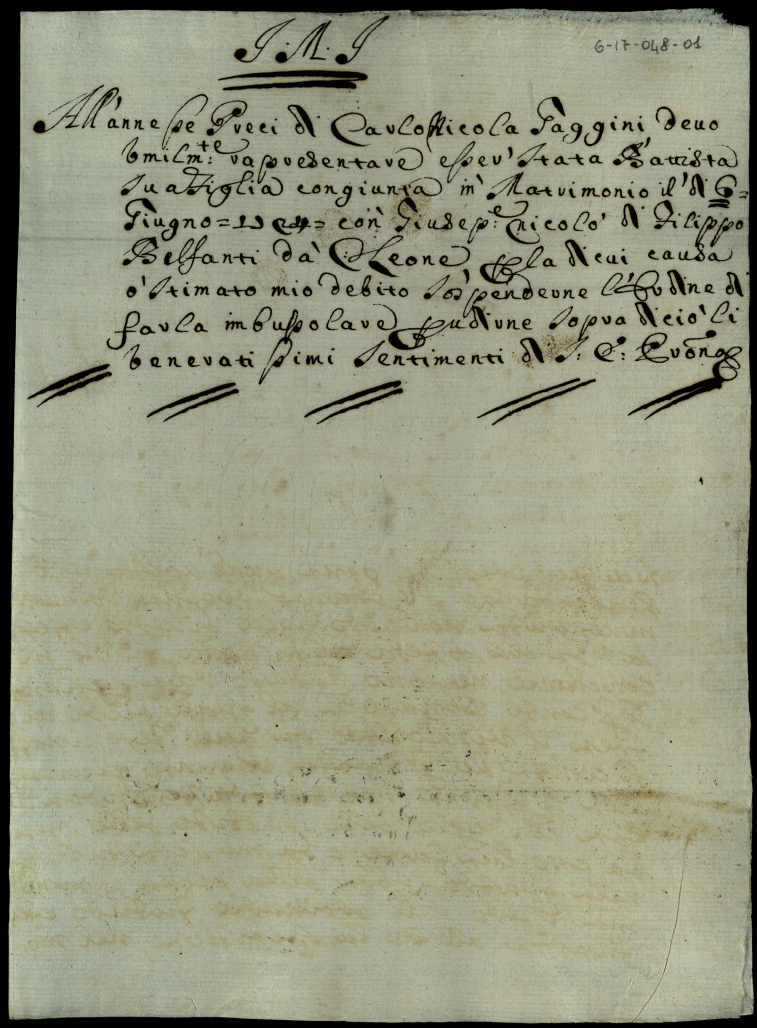 J. M. J
6-17-048-01
All'annesse Preci di Carlo Nicola Faggini devo
Vmilm.te rapresentare esser' Stata Battista
Sua Figlia congiunta in Matrimonio il di 6=
Giugno= con Giusep.e Nicolò di Filippo
Belfanti da C: Leone, p la di cui causa
ò stimato mio debito Sospenderne l'Ordine di
farla imbussolare p udirne sopra di ciò li
veneratissimi Sentimenti di S: E: Prōna